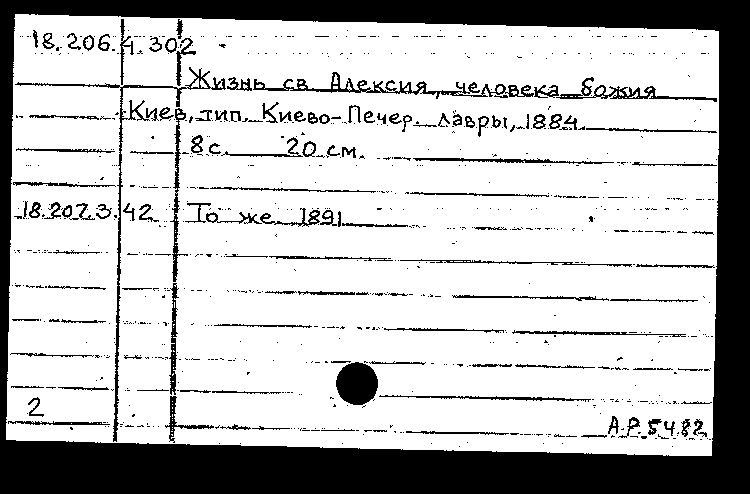 18.206.4.302
Жизнь св. Алексия, человека божия
Киев, тип. Киево-Печер. лавры, 1884.
8 с. 20 см.
18.207.3.42 То же. 1891
2
А.Р. 5482